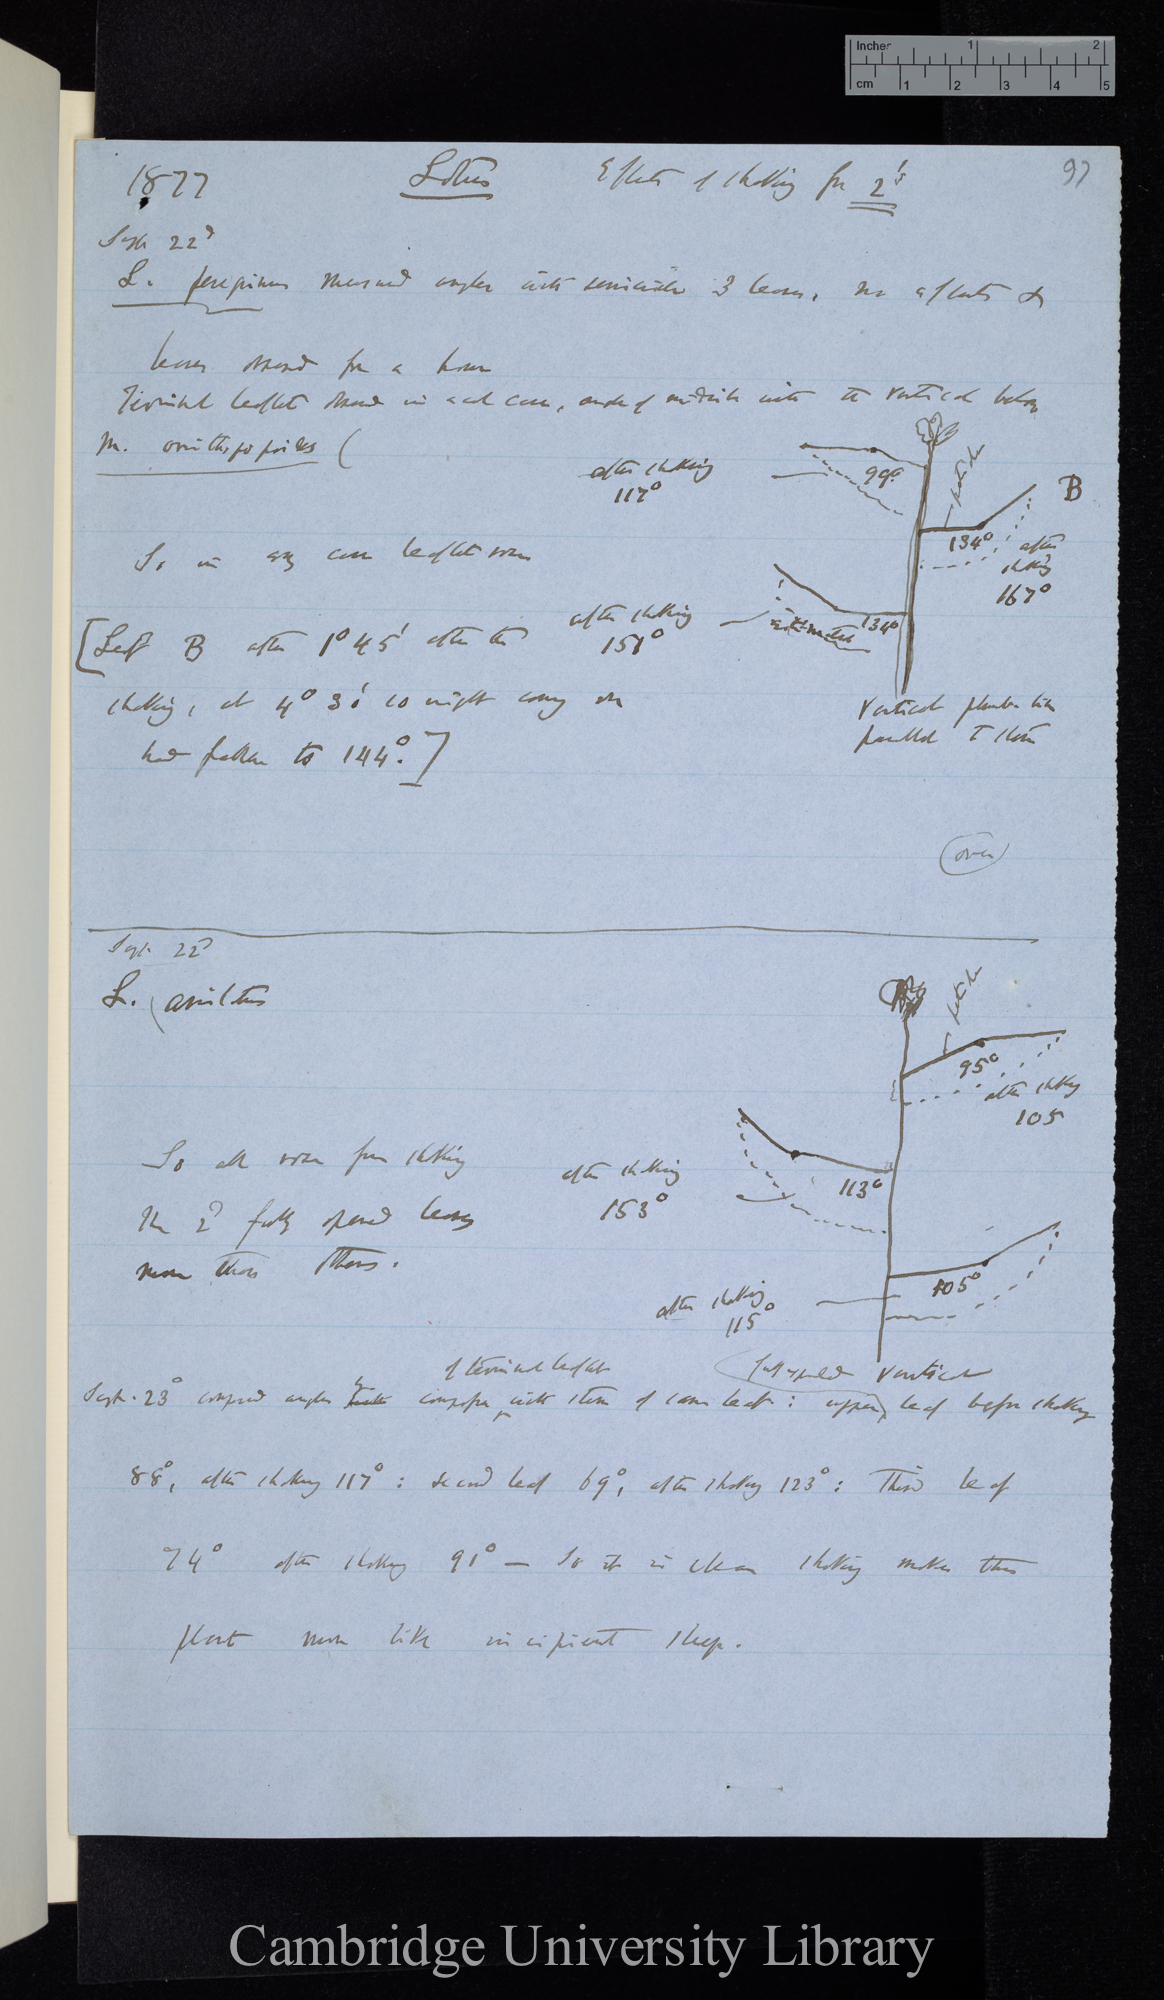 Inches 1 2
cm 1 2 3 4 5
1877 Lotus Effects of shaking for 2' 97
Sept 22d
L. peregrinus measured angles with semicircle 3 leaves, no affects
leaves for a hour
Terminal leaflet in each case, angle of midrib with the vertical below
M. ornithopopoides (
petiole
after shaking 99°
117°
B
134° after
shaking
167°
So in any case leaflet rose
after shaking 134°
151°
[Leaf B after 1° 45' after the
shaking, at 4° 3' so night coming on
had fallen to 144°.]
Vertical plumb line
parallel to stem
(over)
Sept. 22d
L. aristata
petiole
95°
after shaking
105
So all rose from shaking
after shaking 113°
153°
The 2d fully opened leaves
more than others.
105°
after shaking
115°
vertical
of terminal leaflet
fully expanded
Sept. 23d angles with stem of same leaf: upper leaf before shaking
88°, after shaking 117°: second leaf 69°, after shaking 123°: Third leaf
74° after shaking 91° — So it is clear shaking makes this
plant more like incipient sleep.
Cambridge University Library